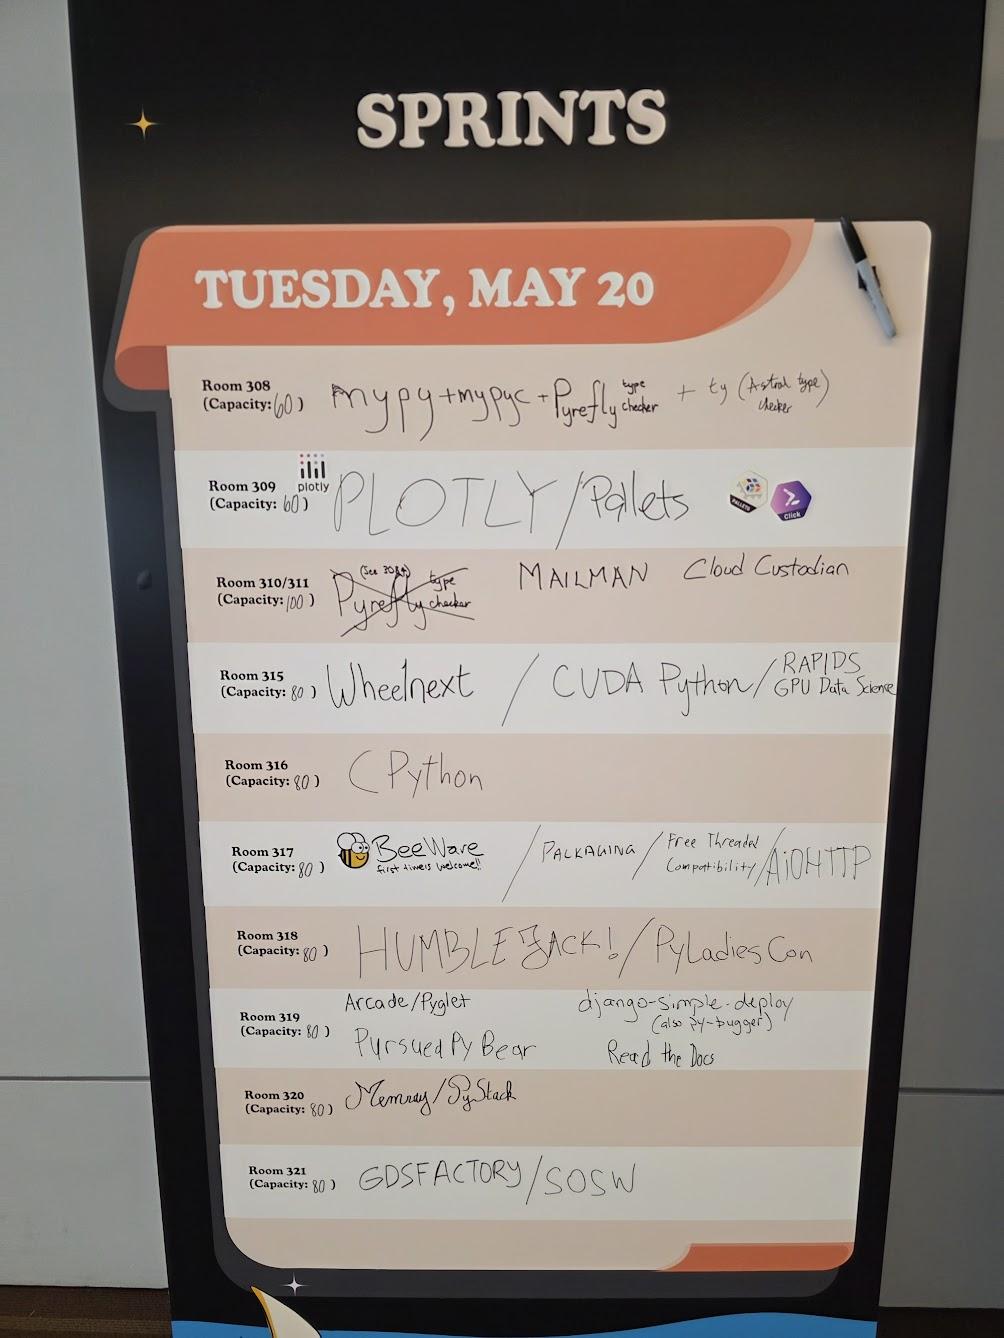 SPRINTS
TUESDAY, MAY 20
Room 308
(Capacity: 60)
mypy + mypyc + Pyrefly type checker + ty (Astral type checker)
Room 309
(Capacity: 60)
plotly
PLOTLY / Pallets
PALLETS
Click
Room 310/311
(Capacity: 100)
(See 308)
Pyrefly type checker
MAILMAN
Cloud Custodian
Room 315
(Capacity: 80)
Wheelnext / CUDA Python / RAPIDS
GPU Data Science
Room 316
(Capacity: 80)
CPython
Room 317
(Capacity: 80)
BeeWare
first timers welcome!!
/ PACKAGING / Free Threaded
Compatibility / AiOHTTP
Room 318
(Capacity: 80)
HUMBLE JACK! / PyLadiesCon
Room 319
(Capacity: 80)
Arcade/Pyglet
django-simple-deploy
(also py-bugger)
Pursued Py Bear
Read the Docs
Room 320
(Capacity: 80)
Memray / PyStack
Room 321
(Capacity: 80)
GDSFACTORY / SOSW